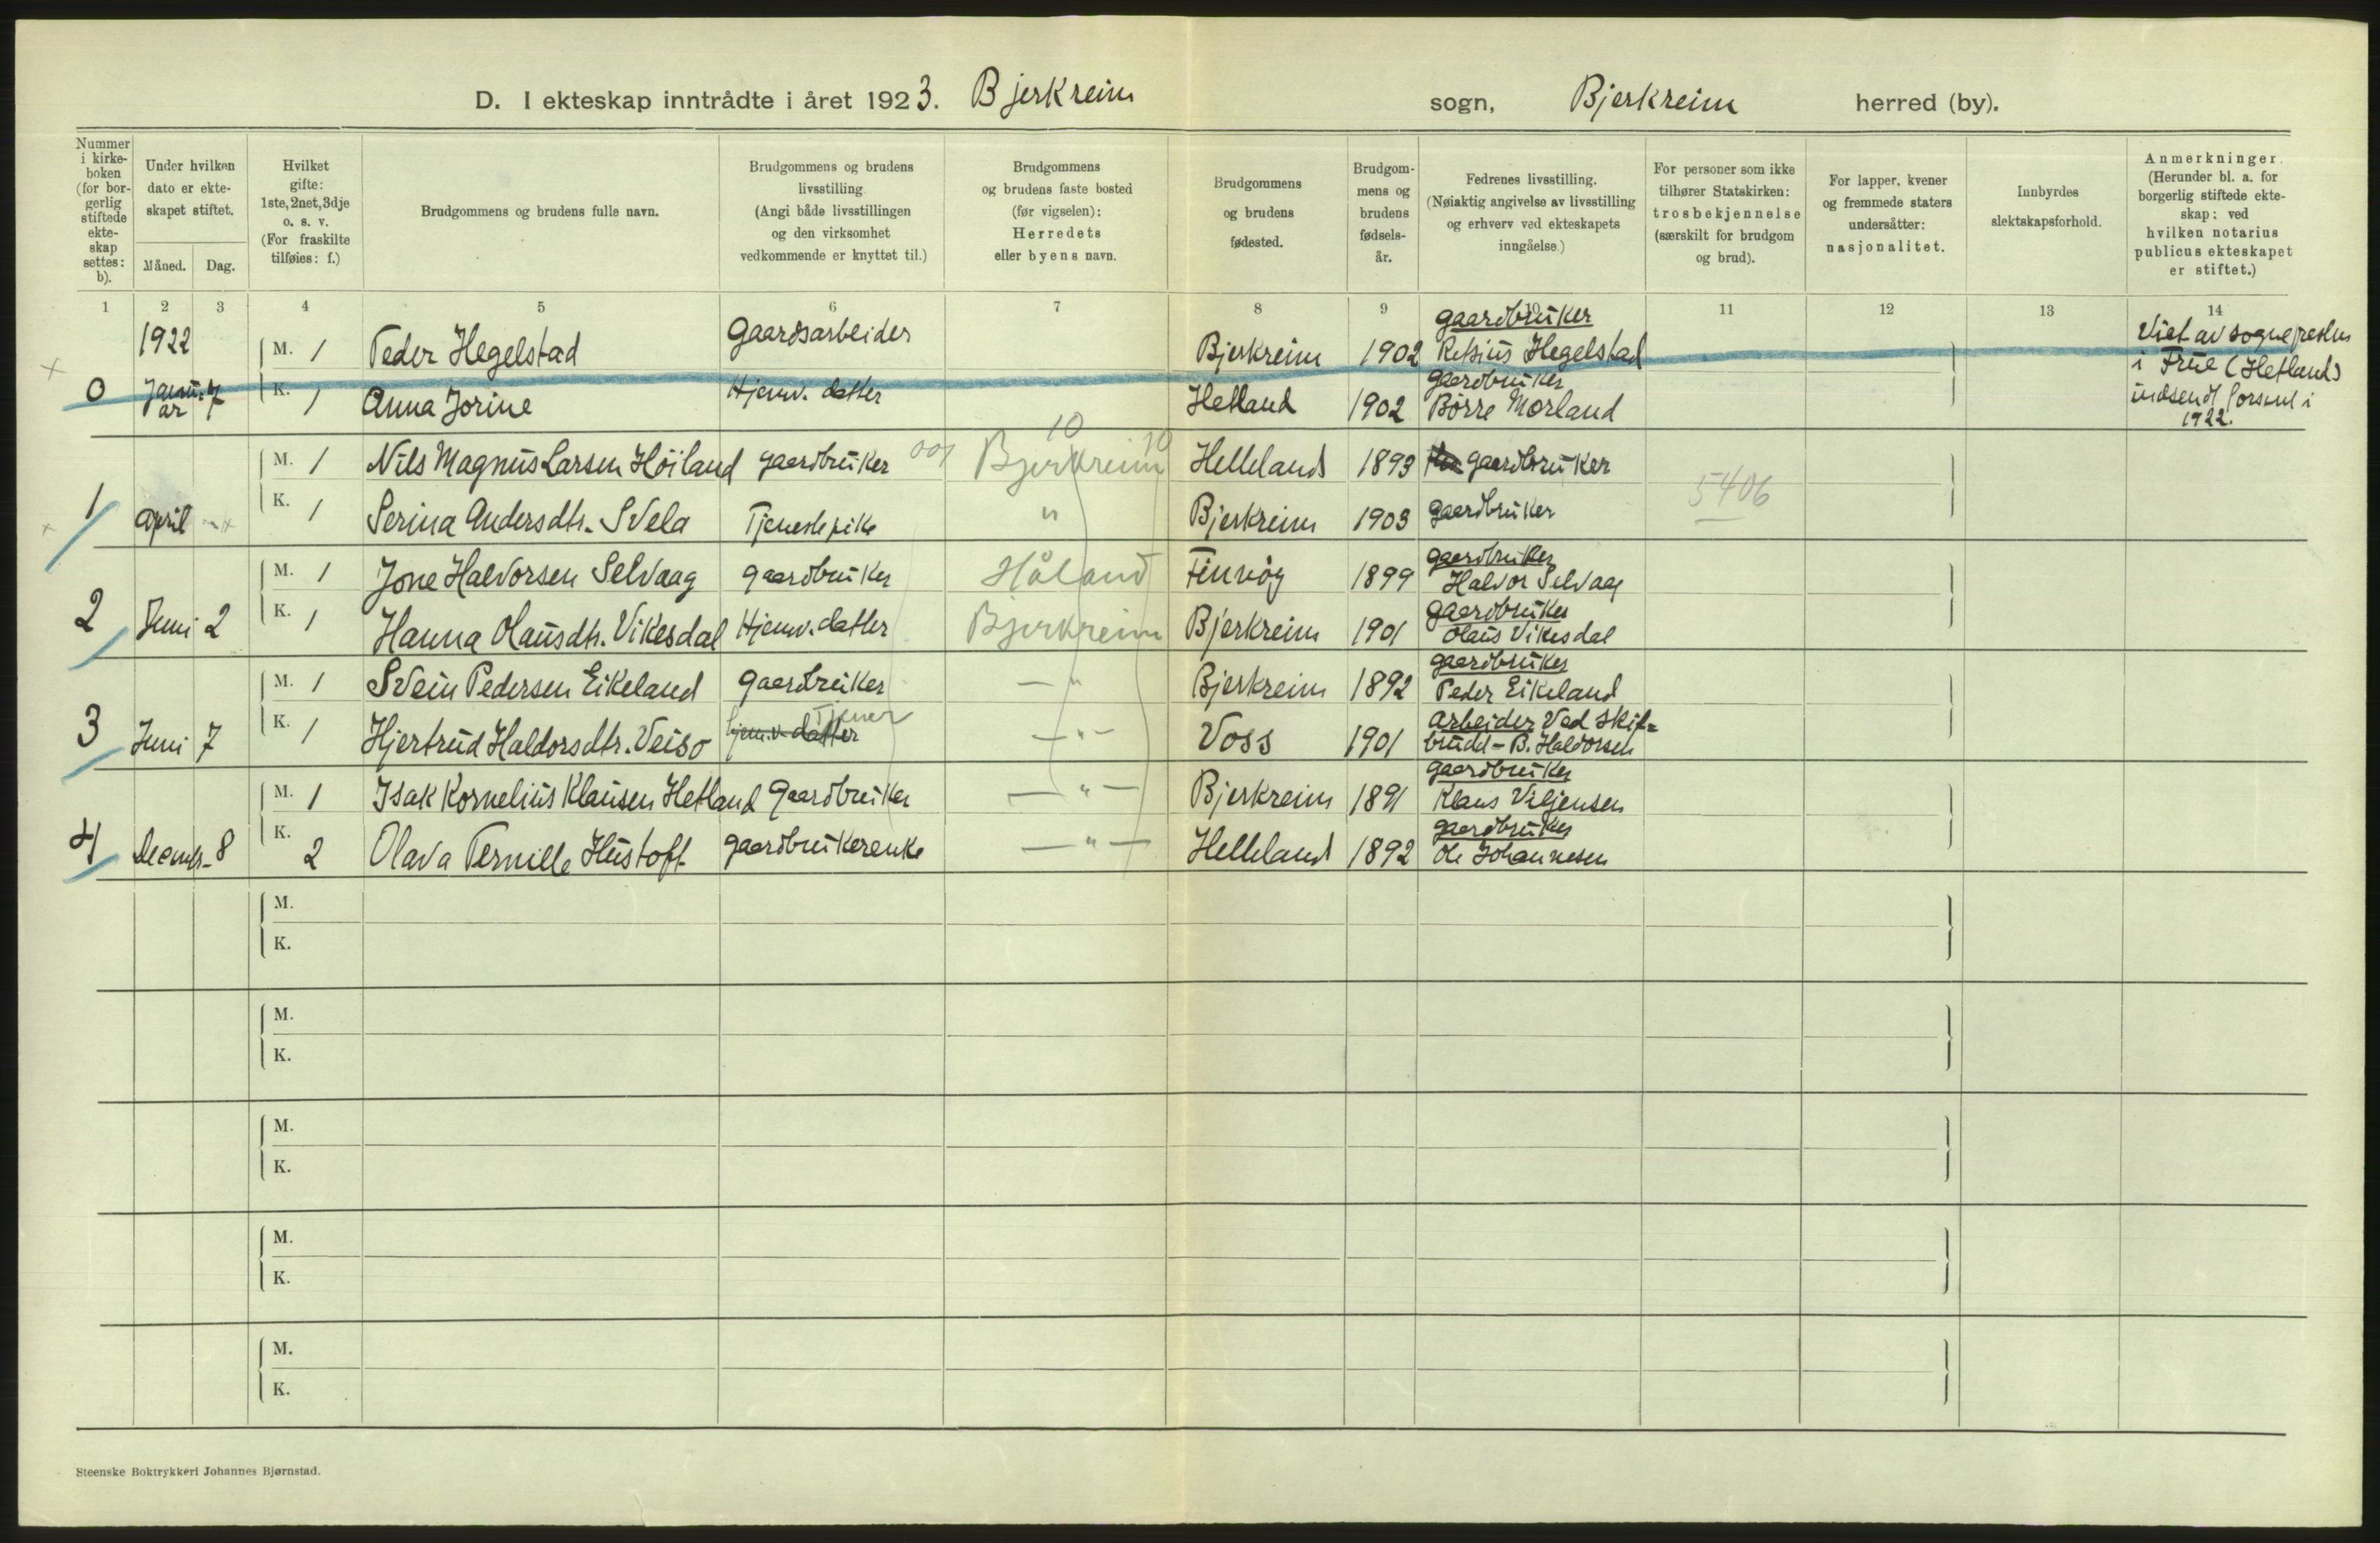 D. I ekteskap inntrådte i året 1923. Bjerkreim sogn, Bjerkreim herred (by).
Nummer i kirkeboken (for borgerlig stiftede ekteskap settes: b).
Under hvilken dato er ekteskapet stiftet.
Måned. Dag.
Hvilket gifte: 1ste, 2net, 3dje o. s. v. (For fraskilte tilføies: f.)
Brudgommens og brudens fulle navn.
Brudgommens og brudens livsstilling (Angi både livsstillingen og den virksomhet vedkommende er knyttet til.)
Brudgommens og brudens faste bosted (før vigselen): Herredets eller byens navn.
Brudgommens og brudens fødested.
Brudgommens og brudens fødselsår.
Fedrenes livsstilling. (Nøiaktig angivelse av livsstilling og erhverv ved ekteskapets inngåelse.)
For personer som ikke tilhører Statskirken: trosbekjennelse (særskilt for brudgom og brud).
For lapper, kvener og fremmede staters undersåtter: nasjonalitet.
Innbyrdes slektskapsforhold.
Anmerkninger. (Herunder bl. a. for borgerlig stiftede ekteskap: ved hvilken notarius publicus ekteskapet er stiftet.)
1 2 3 4 5 6 7 8 9 10 11 12 13 14
1922 M. 1 Peder Hegelstad Gaardsarbeider Bjerkreim 1902 gaardbruker Retsius Hegelstad
0 Januar 7 K. 1 Anna Jorine Hjemv. datter Hetland 1902 gaardbruker Børre Morland
Viet av sognepresten
i Frue (Hetland)
indsendt forsent i
1922.
M. 1 Nils Magnus Larsen Höiland gaardbruker 001 Bjerkreim 10 10 Helleland 1893 gaardbruker
1 April K. 1 Serina Andersdtr. Svela Tjenestepike " Bjerkreim 1903 gaardbruker 5406
M. 1 Jone Halvorsen Selvaag gaardbruker Håland Finnöy 1899 gaardbruker Halvor Selvaag
2 Juni 2 K. 1 Hanna Olausdtr. Vikesdal Hjemv. datter Bjerkreim Bjerkreim 1901 gaardbruker Olaus Vikesdal
M. 1 Svein Pedersen Eikeland gaardbruker — " Bjerkreim 1892 gaardbruker Peder Eikeland
3 Juni 7 K. 1 Hjertrud Haldorsdtr. Veiso hjem.v. datter Tjener — " — Voss 1901 arbeider ved skif=
brudd - B. Haldorsen
M. 1 Isak Kornelius Klausen Hetland Gaardbruker — " — Bjerkreim 1891 gaardbruker Klaus Viljensen
4 Decembr. 8 K. 2 Olava Pernille Hustoft gaardbrukerenke — " — Helleland 1892 gaardbruker Ole Johannesen
M.
K.
M.
K.
M.
K.
M.
K.
M.
K.
Steenske Boktrykkeri Johannes Bjørnstad.